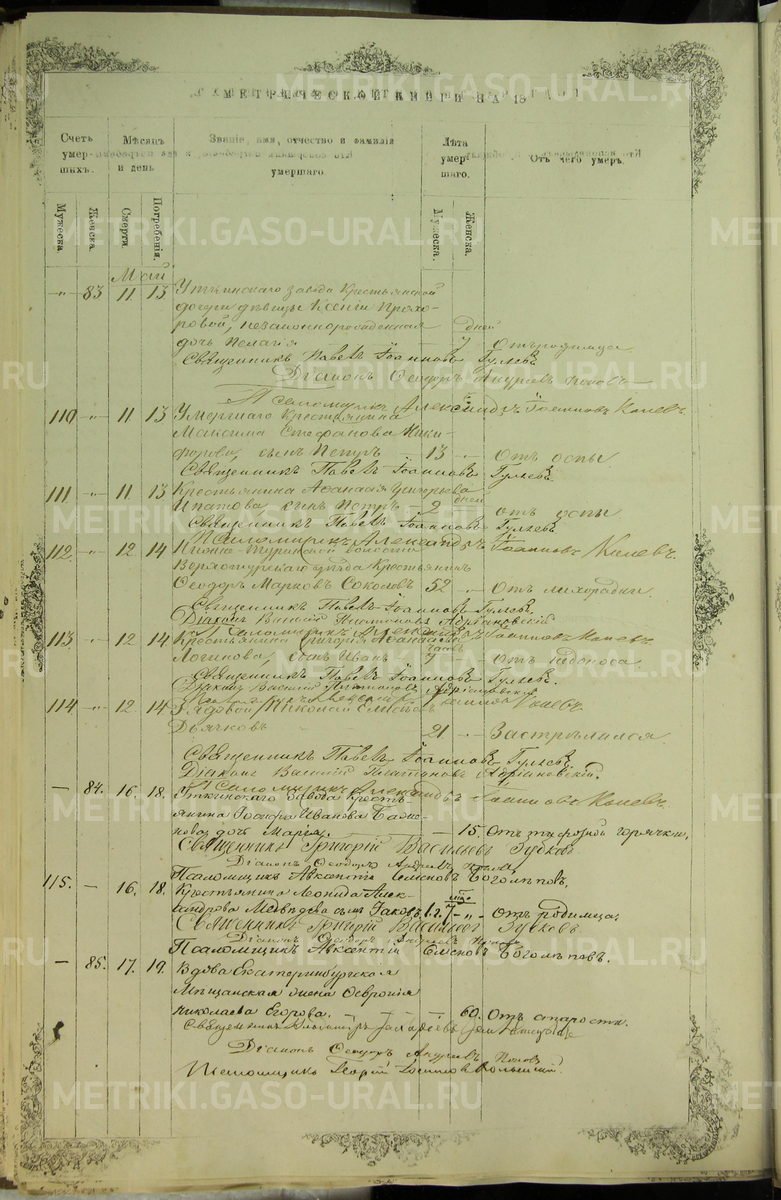 METRIKI.GASO-URAL.RU
МЕТРИЧЕСКОЙ КНИГИ НА 18
Счетъ умер-шихъ.
Мѣсяцъ и день
Званіе, имя, отчество и фамилія умершаго.
Лѣта умер-шаго.
Отъ чего умеръ.
Мужеска.
Женска.
Смерти.
Погребенія.
Мужеска.
Женска.
Май
" 83 11 13 Уткинскаго завода крестьянской
дочери дѣвицы Ксеніи Прохо-
ровой, незаконнорожденная дней
дочь Пелагія 7 Отъ родимца
Священникъ Павелъ Іоанновъ Гуляевъ
Діаконъ Ѳеодоръ Андреевъ Поповъ
Псаломщикъ Александръ Іоанновъ Коневъ
110 " 11 13 Умершаго крестьянина
Максима Стефанова Ники-
форова, сынъ Петръ 13 Отъ оспы
Священникъ Павелъ Іоанновъ Гуляевъ
111 " 11 13 Крестьянина Аѳанасія дней
Ипатова сынъ Петръ 2 отъ оспы
Священникъ Павелъ Іоанновъ Гуляевъ
Псаломщикъ Александръ Іоанновъ Коневъ
112. " 12 14 Нижне-Туринской волости
Верхотурскаго уѣзда крестьянинъ
Ѳеодоръ Марковъ Соколовъ 52 Отъ лихорадки
Священникъ Павелъ Іоанновъ Гуляевъ
Діаконъ Василій Платоновъ Адріановскій
Псаломщикъ Александръ Іоанновъ Коневъ
113 " 12 14 Крестьянина Григорія
Логинова сынъ Иванъ 7 Отъ
Священникъ Павелъ Іоанновъ Гуляевъ
Діаконъ Василій Платоновъ Адріановскій
Псаломщикъ Александръ Іоанновъ Коневъ
114 " 12 14 Рядовой Николай
Дьячковъ 21 Застрѣлился
Священникъ Павелъ Іоанновъ Гуляевъ
Діаконъ Василій Платоновъ Адріановскій.
Псаломщикъ Александръ Іоанновъ Коневъ.
— 84. 16. 18. Уткинскаго завода кресть-
янина Іосифа Иванова
дочь Марія. — 15. Отъ тифозной горячки,
Священникъ Григорій Васильевъ Зубковъ
Діаконъ Ѳеодоръ Андреевъ Поповъ
Псаломщикъ Авксентій Семеновъ Боголѣповъ.
115. — 16. 18. Крестьянина Леонида Алек-
сандрова Медвѣдева сынъ Іаковъ, 1 г. — " — отъ родимца.
Священникъ Григорій Васильевъ Зубковъ
Діаконъ Ѳеодоръ Андреевъ Поповъ
Псаломщикъ Авксентій Семеновъ Боголѣповъ.
— 85. 17. 19. Вдова Екатеринбургская
мѣщанская жена Ѳевронія
Николаева Егорова. — 60. Отъ старости.
Священникъ
Діаконъ Ѳеодоръ Андреевъ Поповъ
Псаломщикъ Георгій